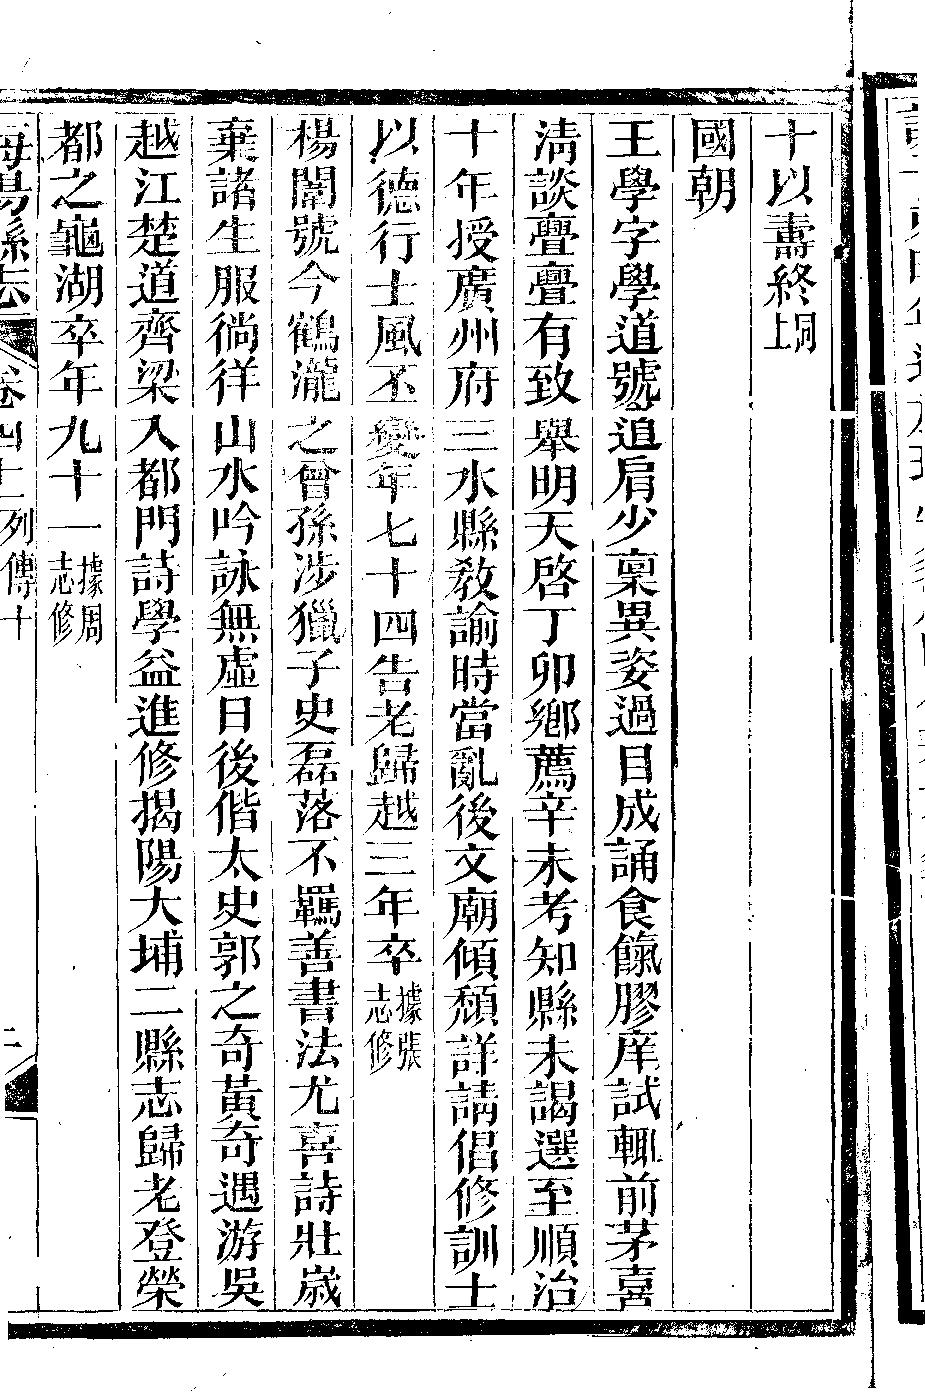 十以壽終同上
國朝
王學字學道號追肩少稟異姿過目成誦食餼膠庠試輒前茅喜
清談亹亹有致舉明天啓丁卯鄉薦辛未考知縣未謁選至順治
十年授廣州府三水縣教諭時當亂後文廟傾頹詳請倡修訓士
以德行士風丕變年七十四告老歸越三年卒據張志修
楊闇號今鶴瀧之曾孫涉獵子史磊落不羈善書法尤喜詩壯歲
棄諸生服徜徉山水吟詠無虛日後偕太史郭之奇黃奇遇游吳
越江楚道齊梁入都門詩學益進修揭陽大埔二縣志歸老登榮
都之龜湖卒年九十一據周志修
海陽縣志 卷四十 列傳十